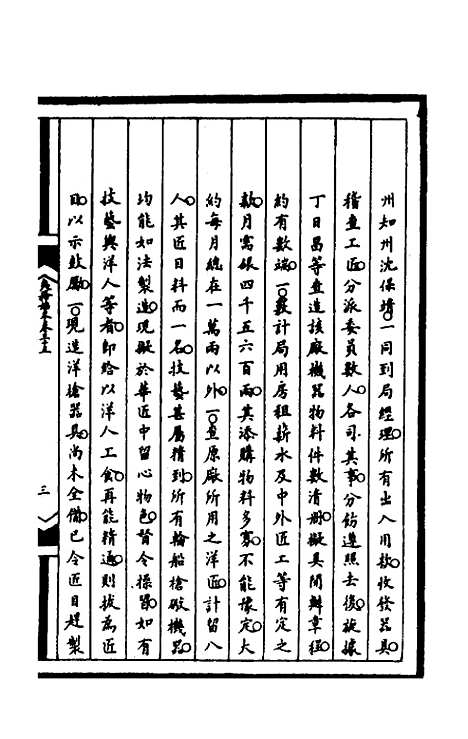 州知州沈保靖一同到局經理所有出入用款收發器具
稽查工匠分派委員數人各司其事分飭遵照去後旋據
丁日昌等查造該廠機器物料件數清册擬具開辦章程
約有數端一數計局用房租薪水及中外匠工等有定之
款月需銀四千五六百兩其添購物料多寡不能豫定大
約每月總在一萬兩以外一查原廠所用之洋匠計留八
人其匠目料而一名技藝甚屬精到所有輪船槍礮機器
均能如法製造現擬於華匠中留心物色督令操習如有
技藝與洋人等者卽給以洋人工食再能精通則拔爲匠
目以示鼓勵一現造洋槍器具尚未全備已令匠目趕製
三